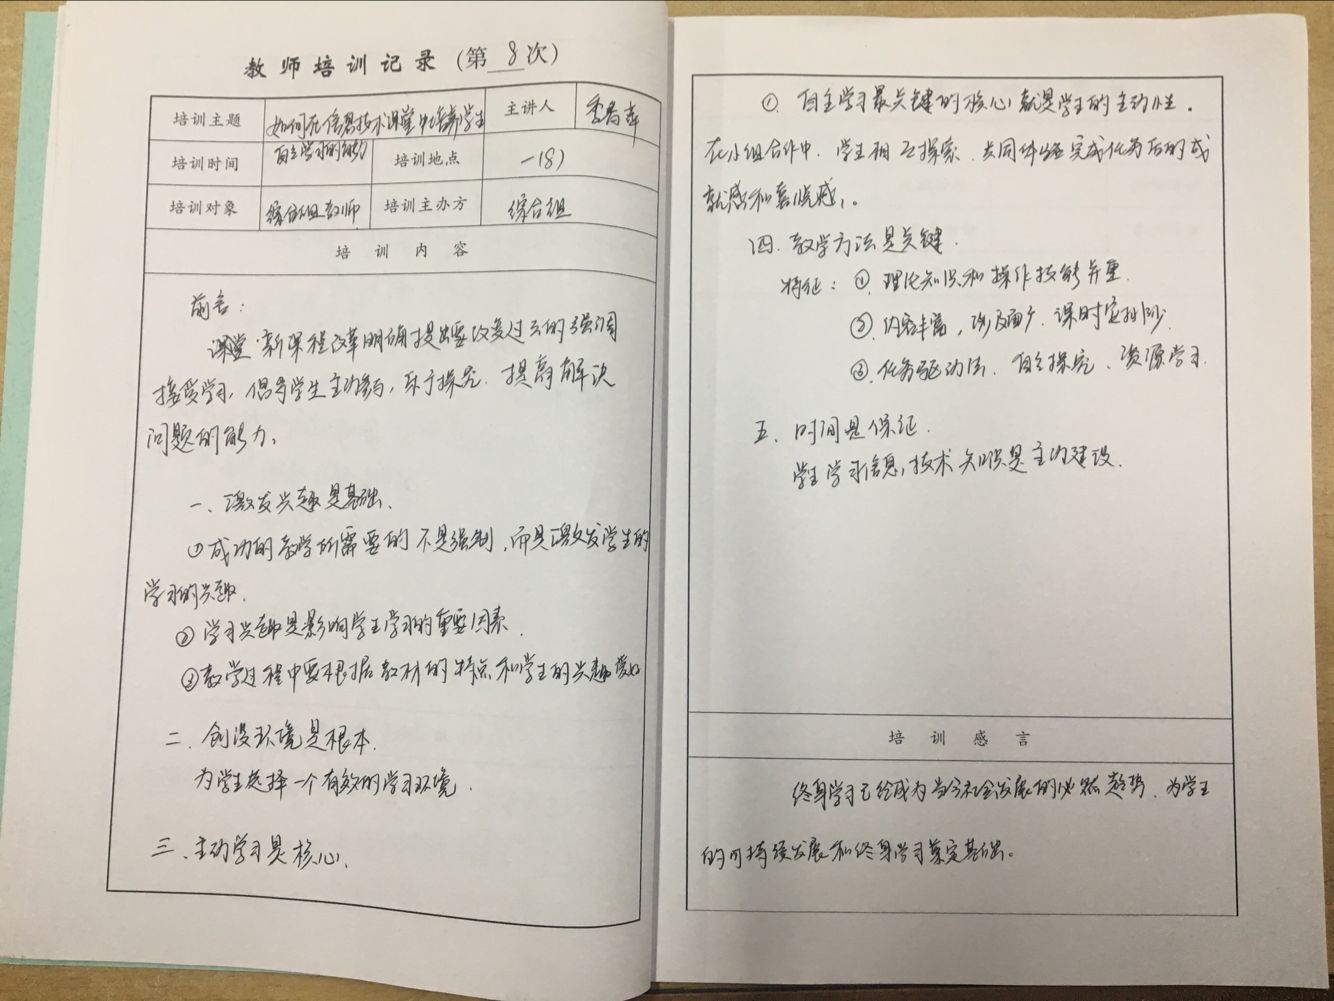 教师培训记录（第 8 次）
培训主题 如何在信息技术课堂中培养学生 主讲人
自主学习的能力
培训时间 培训地点 一(8)
培训对象 综合组教师 培训主办方 综合组
培训内容
前言：
课堂新课程改革明确提出要改变过去的强调
接受学习，倡导学生主动参与，乐于探究、提高解决
问题的能力。
一、激发兴趣是基础、
①成功的教学所需要的不是强制，而是激发学生的
学习的兴趣.
②学习兴趣是影响学生学习的重要因素.
③教学过程中要根据教材的特点和学生的兴趣爱好
二、创设环境是根本.
为学生选择一个有效的学习环境.
三、主动学习是核心、
①、自主学习最关键的核心就是学生的主动性。
在小组合作中、学生相互探索、共同体验完成任务后的成
就感和喜悦感。
四、教学方法是关键.
特征：①、理论知识和操作技能并重.
②、内容丰富，涉及面广、课时安排少.
③、任务驱动法、自主探究、资源学习.
五、时间是保证.
学生学习信息技术知识是主动建设.
培训感言
终身学习已经成为当今社会发展的必然趋势、为学生
的可持续发展和终身学习奠定基础。